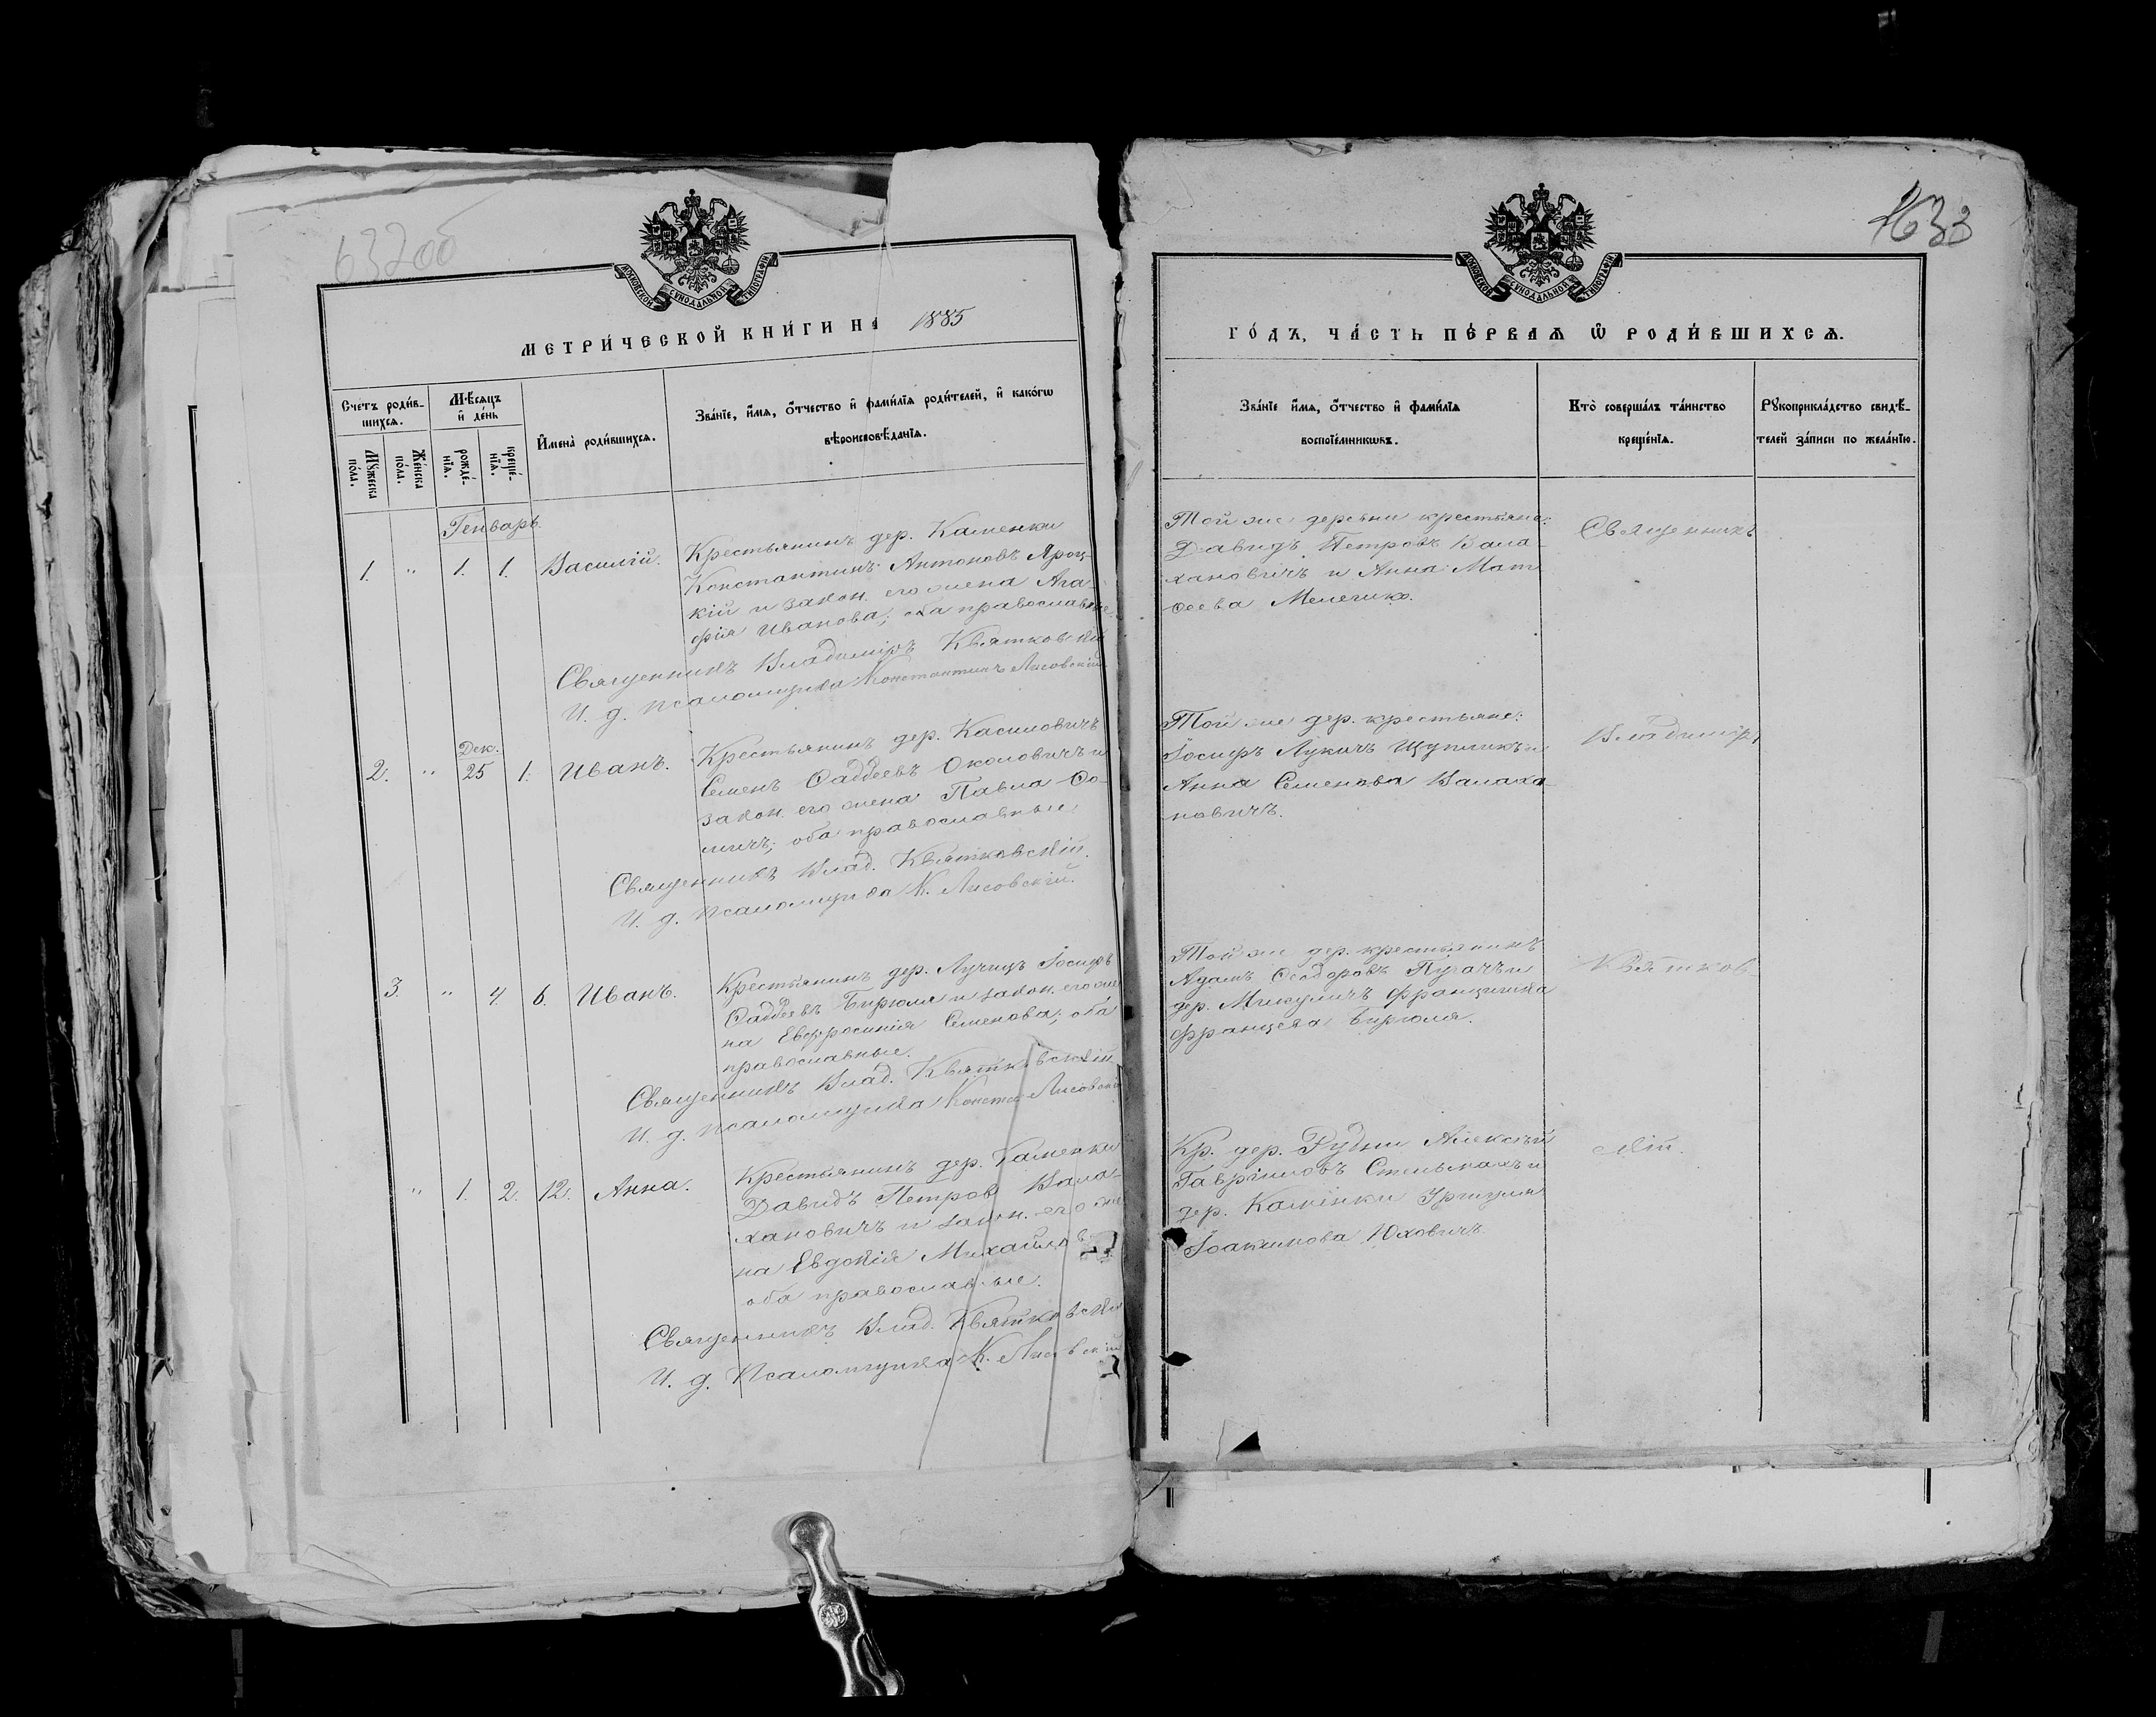 632об
МОСКОВСКОЙ СѴНОДАЛЬНОЙ ТИПОГРАФІИ
МЕТРИ́ЧЕСКОЙ КНИ́ГИ НА 1885
Сче́тъ роди́вшихсѧ.
Мꙋ́жеска по́ла.
Же́нска по́ла.
Мѣ́сѧцъ и҆ де́нь
рожде́нїѧ.
креще́нїѧ.
И҆мена̀ роди́вшихсѧ.
Зва́нїе, и҆́мѧ, ѻ҆́тчество и҆ фами́лїѧ роди́телей, и҆ како́гѡ
вѣроисповѣ́данїѧ.
Генварь.
1. " 1. 1. Василій.
Крестьянинъ дер. Каменки
Константинъ Антоновъ Яроц-
кій и закон. его жена Ага-
фія Иванова; оба православные.
Священникъ Владиміръ Квятковскій
И. д. псаломщика Константинъ Лисовскій.
Дек.
2. " 25 1. Иванъ.
Крестьянинъ дер. Касиловичъ
Семенъ Ѳаддеевъ Околовичъ и
закон. его жена Павла Ѳо-
мичъ; оба православные.
Священникъ Влад. Квятковскій.
И. д. псаломщика К. Лисовскій.
3. " 4. 6. Иванъ.
Крестьянинъ дер. Лучицъ Іосифъ
Ѳаддеевъ Бирюля и закон. его же-
на Евфросинія Семенова; оба
православные.
Священникъ Влад. Квятковскій
И. д. псаломщика Конст. Лисовскій
" 1. 2. 12. Анна.
Крестьянинъ дер. Каменки
Давидъ Петровъ Вала-
хановичъ и закон. его же-
на Евдокія Михайлова
оба православные.
Священникъ Влад. Квятковскій
И. д. Псаломщика К. Лисовскій
633
МОСКОВСКОЙ СѴНОДАЛЬНОЙ ТИПОГРАФІИ
ГО́ДЪ, ЧА́СТЬ ПЕ́РВАѦ Ѡ҆ РОДИ́ВШИХСѦ.
Зва́нїе и҆́мѧ, ѻ҆́тчество и҆ фами́лїѧ
воспрїе́мникѡвъ.
Кто̀ соверша́лъ та́инство
креще́нїѧ.
Рꙋкоприкла́дство свидѣ́-
телей за́писи по жела́нїю.
Той же деревни крестьяне:
Давидъ Петровъ Вала-
хановичъ и Анна Мат-
ѳеева
Священникъ
Той же дер. крестьяне:
Іосифъ Лукичъ Щуплякъ и
Анна Семенова Валаха-
новичъ.
Владиміръ
Той же дер. крестьянинъ
Адамъ Ѳеодоровъ Пугачъ и
дер. Микуличъ Францишка
Францева Бирюля.
Квятков-
Кр. дер. Рудни Алексѣй
Гавріиловъ Стельмахъ и
дер. Каменки
Іоакимова Юховичъ.
скій.